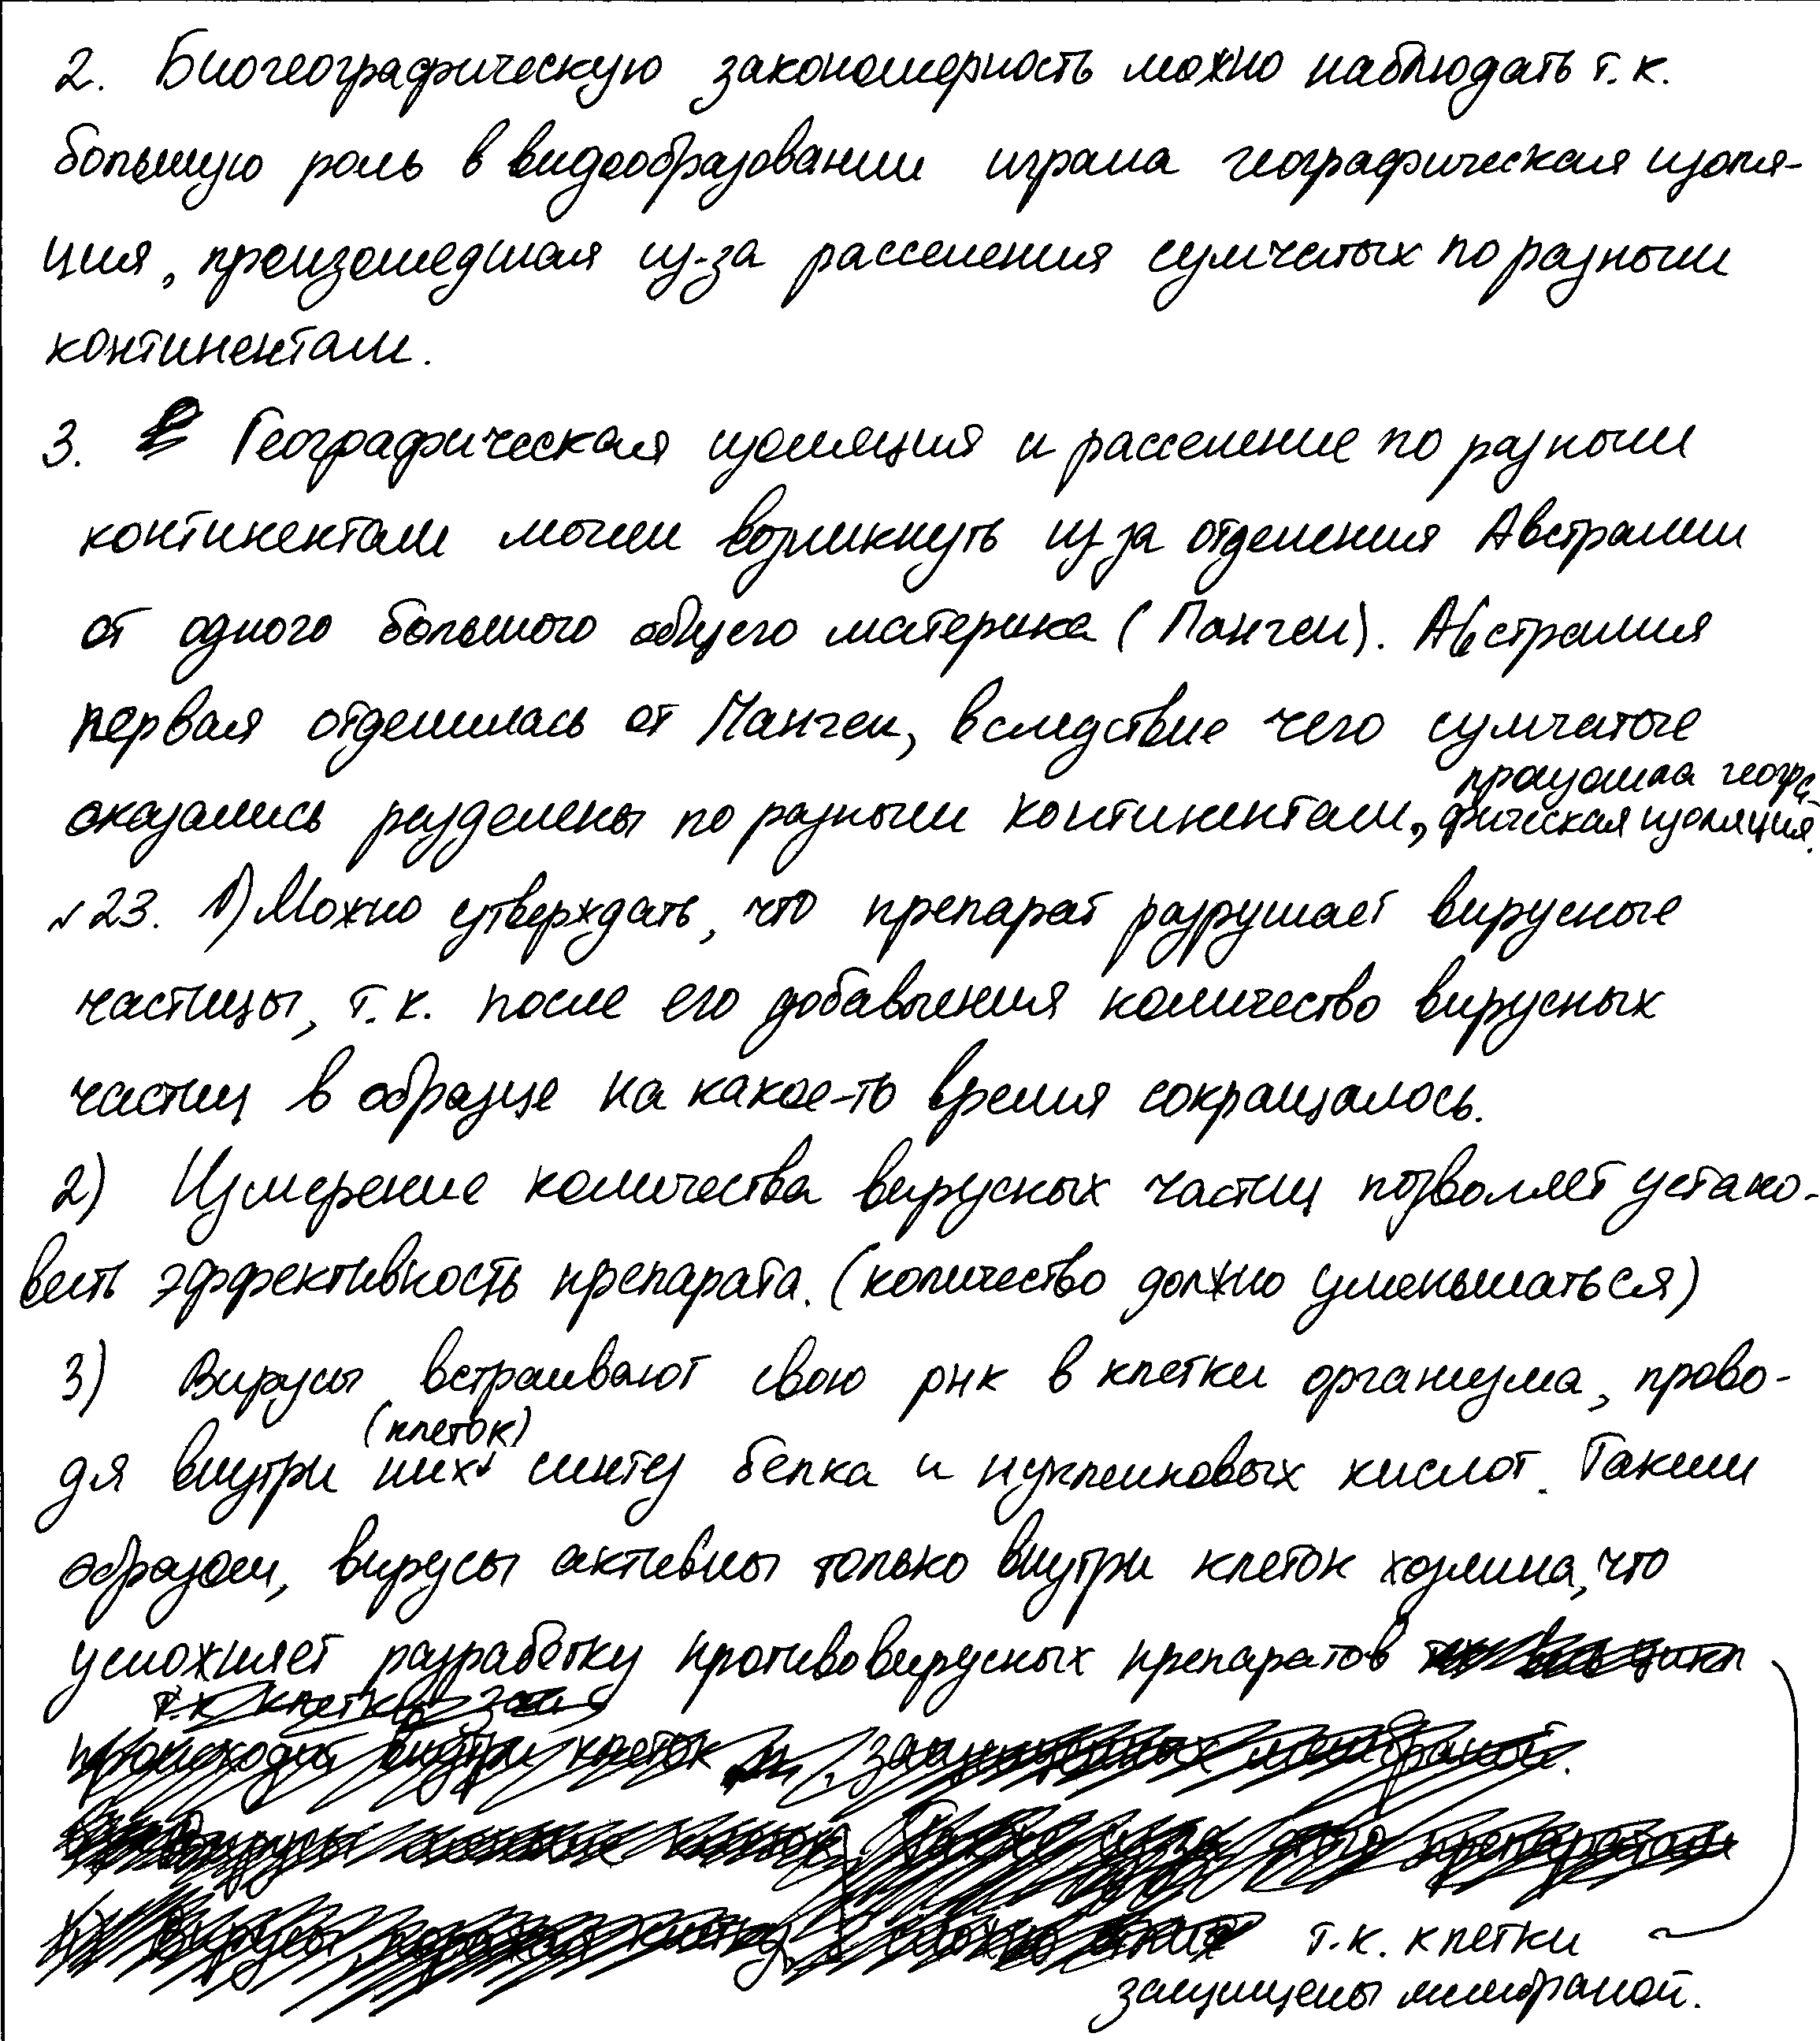 2. Биогеографическую закономерность можно наблюдать т.к.
большую роль в видообразовании играла географическая изоля-
ция, произошедшая из-за расселения сумчатых по разным
континентам.
3. Географическая изоляция и расселение по разным
континентам могли возникнуть из за отделения Австралии
от одного большого общего материка (Пангеи). Австралия
первая отделилась от Пангеи, вследствие чего сумчатые
оказались разделены по разным континентам, произошла геогра-
фическая изоляция.
№23. 1) Можно утверждать, что препарат разрушает вирусные
частицы, т.к. после его добавления количество вирусных
частиц в образце на какое-то время сокращалось.
2) Измерение количества вирусных частиц позволяет устано-
вить эффективность препарата. (количество должно уменьшаться)
3) Вирусы встраивают свою рнк в клетки организма, прово-
дя внутри них (клеток) синтез белка и нуклеиновых кислот. Таким
образом, вирусы активны только внутри клеток хозяина, что
усложняет разработку противовирусных препаратов
т.к. клетки
защищены мембраной.